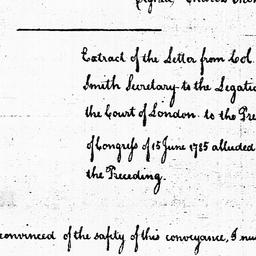 Extract of the Letter from Col.
Smith Secretary to the Legatio
the Court of London. to the Pre
of Congress of 15 June 1785 alluded
the Preceding.
convinced of the safety of this conveyance, I mu